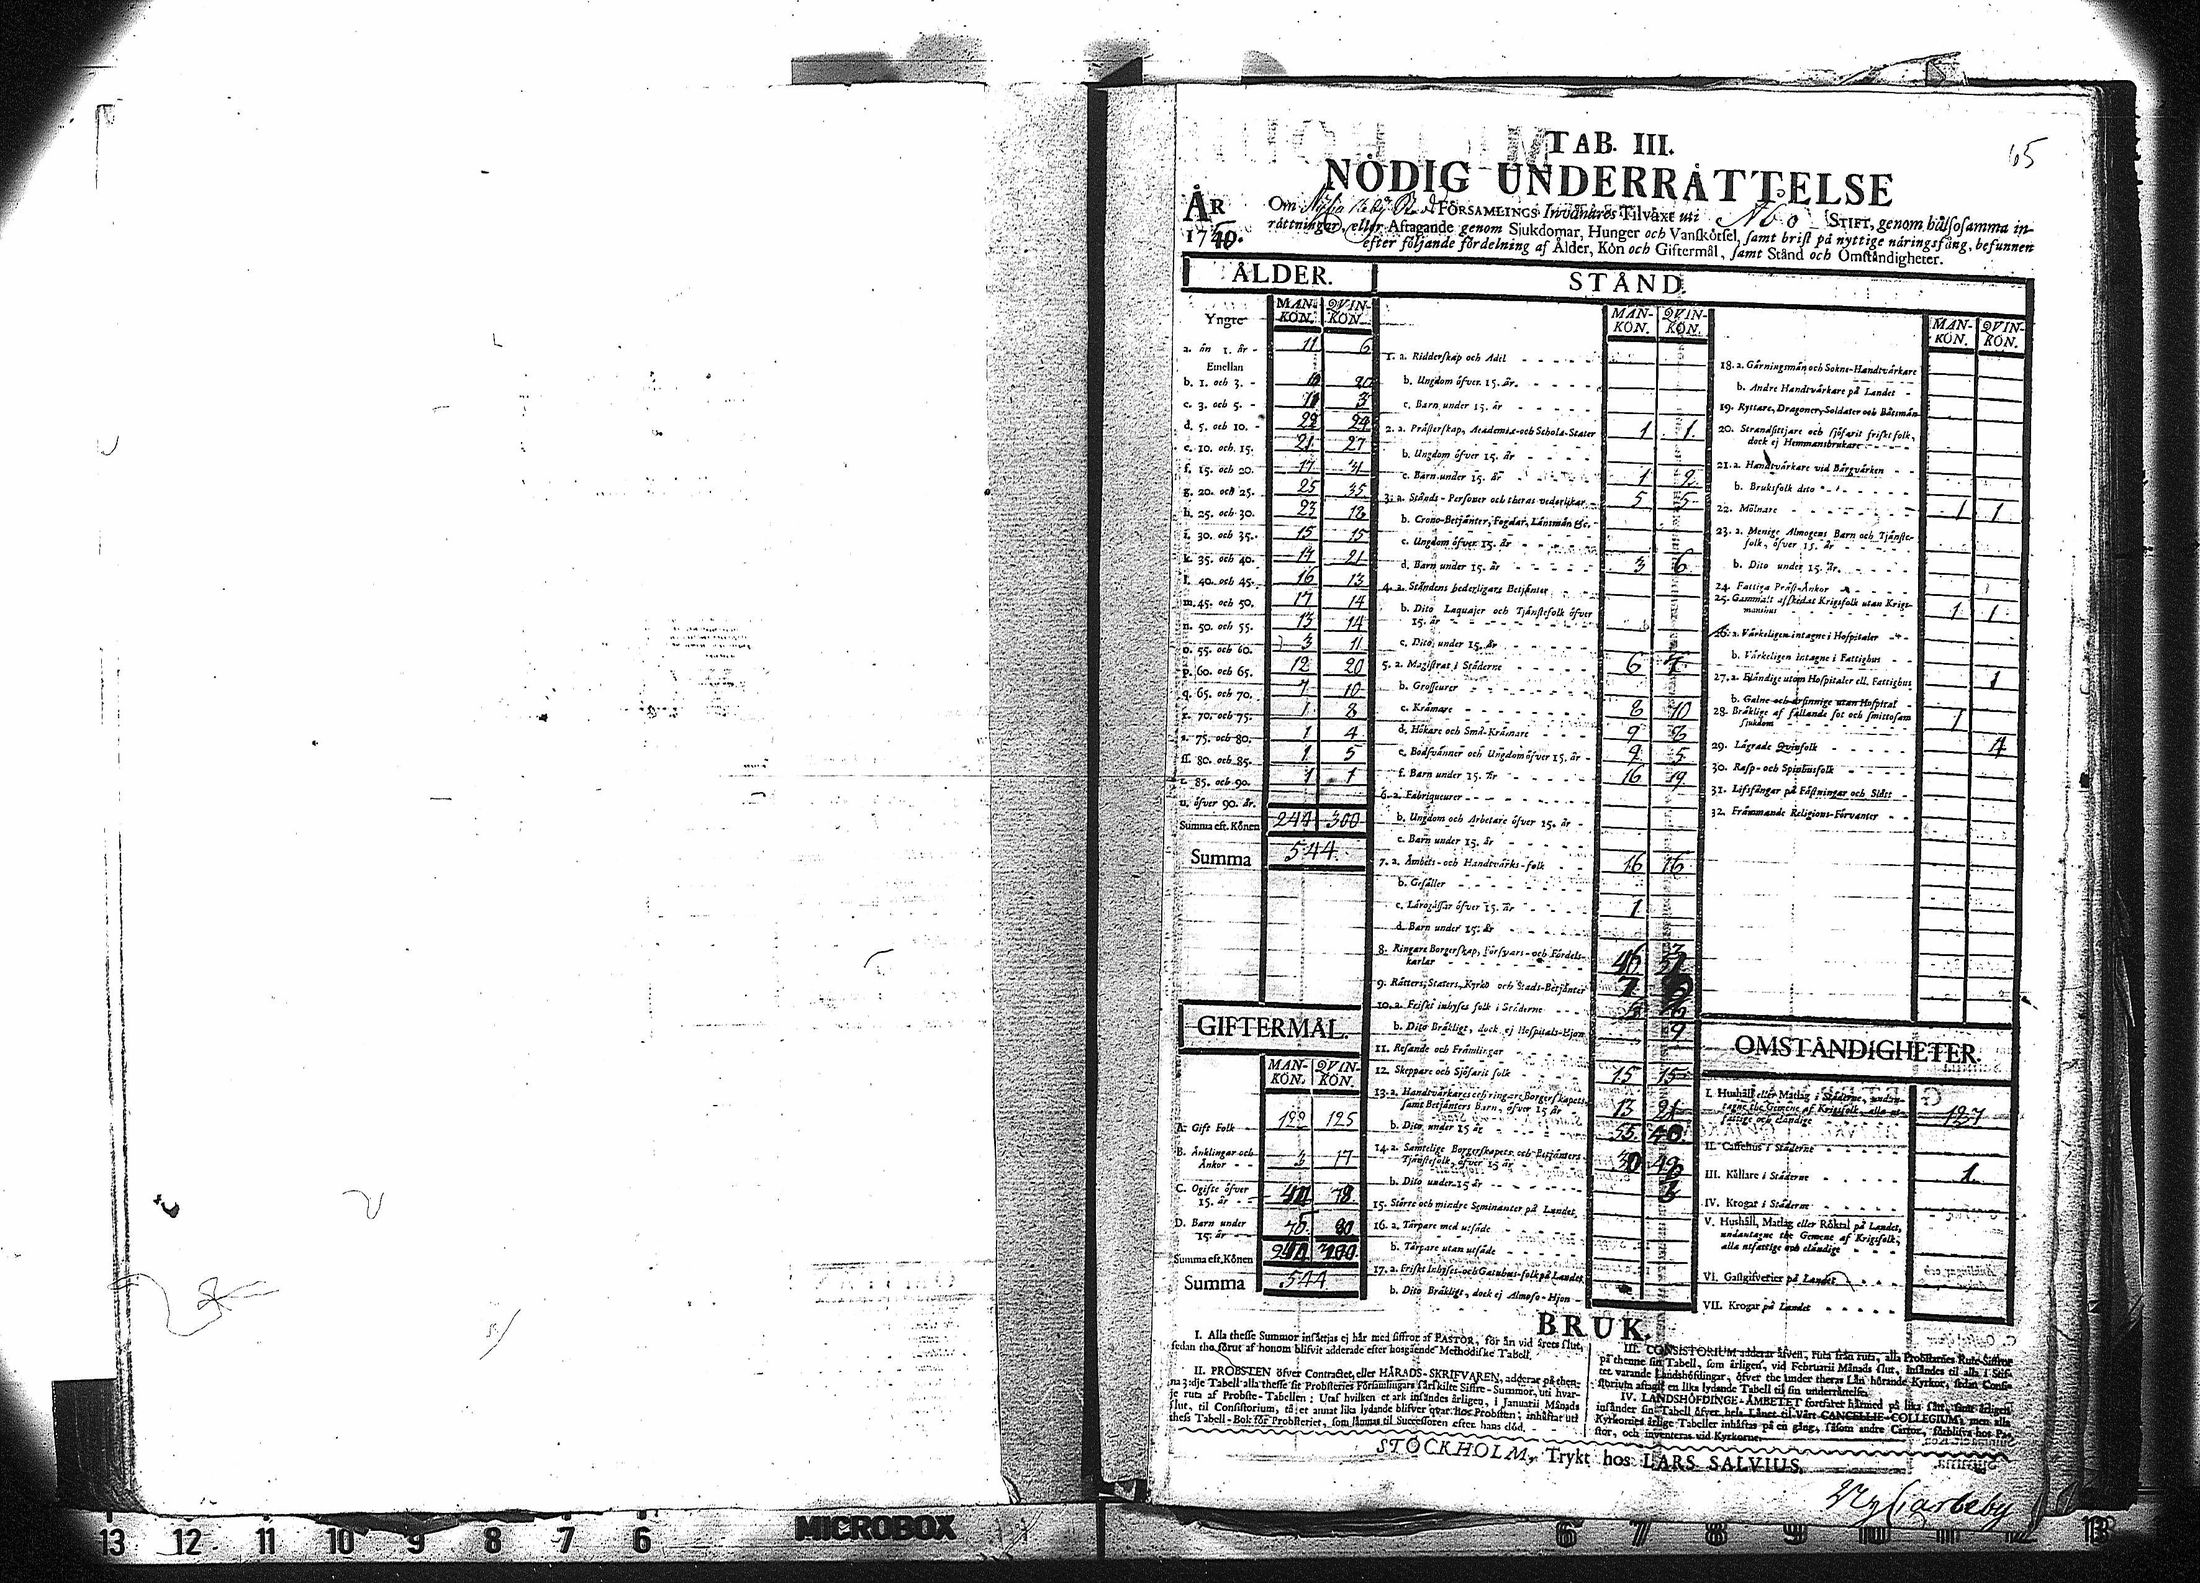 65
TAB. III.
NÖDIG UNDERRÅTTELSE
ÅR
Om FÖRSAMLINGS Invånares Tilväxt uti Åbo STIFT, genom hälsosamma in-
råttningar, eller Aftagande genom Sjukdomar, Hunger och Vanskötsel, samt brist på nyttige näringsfång, befunnen
efter följande fördelning af Ålder, Kön och Giftermål, samt Stånd och Omståndigheter.
ÅLDER.
Yngre MAN-KÖN. QVIN-KÖN.
a. än 1. år - 11 6
Emellan
b. 1. och 3. - 20
c. 3. och 5. - 3
d. 5. och 10. - 22 24
e. 10. och 15. 21 27
f. 15. och 20. 17 31
g. 20. och 25. 25 35
h. 25. och 30. 23 18
i. 30. och 35. 15 15
k. 35. och 40. 14 21
l. 40. och 45. 16 13
m. 45. och 50. 17 14
n. 50. och 55. 13 14
o. 55. och 60. 3 11
p. 60. och 65. 12 20
q. 65. och 70. 7 10
r. 70. och 75. 1 8
s. 75. och 80. 1 4
ſſ. 80. och 85. 1 5
t. 85. och 90. 1 1
u. öfver 90. år.
Summa eft. Könen 244 300
Summa 544
GIFTERMÅL.
MAN-KÖN. QVIN-KÖN.
A. Gift Folk - 122 125
B. Änklingar och
Änkor - - 3 17
C. Ogifte öfver
15. år - - 78
D. Barn under
15. år 80
Summa eft. Könen 300
Summa 544
STÅND.
MAN-KÖN. QVIN-KÖN.
1. a. Ridderskap och Adel
b. Ungdom öfver 15. år.
c. Barn under 15. år
2. a. Prästerskap, Academiæ- och Schola-Stater 1 1
b. Ungdom öfver 15. år
c. Barn under 15. år 1 2
3. a. Stånds-Personer och theras vederlikar 5 5
b. Crono-Betjänter, Fogdar, Länsmän &c.
c. Ungdom öfver 15. år
d. Barn under 15. år 3 6
4. a. Ståndens hederligare Betjänter
b. Dito Laquajer och Tjänstefolk öfver
15. år
c. Dito under 15. år
5. a. Magistrat i Städerne 6 7
b. Grosseurer
c. Krämare 8 10
d. Hökare och Små-Krämare 9 8
e. Bodsvänner och Ungdom öfver 15. år - 9 5
f. Barn under 15. år 16 19
6. a. Fabriqueurer
b. Ungdom och Arbetare öfver 15. år -
c. Barn under 15. år
7. a. Ämbets- och Handtvärks-folk 16 16
b. Gesäller
c. Lärogåssar öfver 15. år 1
d. Barn under 15. år
8. Ringare Borgerskap, Försvars- och Fördels-
karlar
9. Rätters, Staters, Kyrko och Stads-Betjänter 7
10. a. Friskt inhyses folk i Städerne
b. Dito Bräkligt, dock ej Hospitals-Hjon 9
11. Resande och Främlingar
12. Skeppare och Sjöfarit folk 15 15
13. a. Handtvärkares och ringare Borgerskapets,
samt Betjänters Barn, öfver 15 år 13 21
b. Dito under 15 år 55 40
14. a. Samtelige Borgerskapets och Betjänters
Tjänstefolk, öfver 15 år 30
b. Dito under 15 år
15. Större och mindre Seminanter på Landet
16. a. Torpare med utsäde
b. Torpare utan utsäde
17. a. Friskt Inhyses- och Gatuhus-folk på Landet
b. Dito Bräkligt, dock ej Almoso-Hjon
MAN-KÖN. QVIN-KÖN.
18. a. Gärningsmän och Sokne-Handtvärkare
b. Andre Handtvärkare på Landet -
19. Ryttare, Dragoner, Soldater och Båtsmän
20. Strandsittjare och sjöfarit friskt folk,
dock ej Hemmansbrukare
21. a. Handtvärkare vid Bärgvärken
b. Bruksfolk dito
22. Mölnare 1 1
23. a. Menige Almogens Barn och Tjänste-
folk, öfver 15. år
b. Dito under 15. år.
24. Fattiga Präst-Änkor
25. Gammalt afskedat Krigsfolk utan Krigs-
manshus 1 1
26. a. Värkeligen intagne i Hospitaler
b. Värkeligen intagne i Fattighus
27. a. Eländige utom Hospitaler ell. Fattighus 1
b. Galne och arfinnige utan Hospital -
28. Bräklige af fallande sot och smittosam
sjukdom 1
29. Lägrade Qvinfolk 4
30. Rasp- och Spinhusfolk
31. Lifsfångar på Fästningar och Slått
32. Främmande Religions-Förvanter
OMSTÅNDIGHETER.
I. Hushåll eller Matlag i Städerne, undan-
tagne the Gemene af Krigsfolk, alla ut-
fattige och eländige 127
II. Caffehus i Städerne
III. Källare i Städerne 1.
IV. Krogar i Städerne
V. Hushåll, Matlag eller Röktal på Landet,
undantagne the Gemene af Krigsfolk,
alla utfattige och eländige
VI. Gästgifverier på Landet
VII. Krogar på Landet
BRUK.
I. Alla thesse Summor insättjas ej här med siffror af PASTOR, för än vid årets slut,
sedan the förut af honom blifvit adderade efter hosgående Methodiske Tabell.
II. PROBSTEN öfver Contractet, eller HÄRADS-SKRIFVAREN, adderar på then-
na 3:dje Tabell alla thesse sit Probsteries Församlingars särskilte Siffre-Summor, uti hvar-
je ruta af Probste-Tabellen: Utaf hvilken et ark insändes årligen, i Januarii Månads
slut, til Consistorium, tå et annat lika lydande blifver qvar hos Probsten, inhäftat uti
thess Tabell-Bok för Probsteriet, som lämnas til Successoren efter hans död.
III. CONSISTORIUM adderar äfven, ruta från ruta, alla Probstaries Rute-Siffror
på thenne sin Tabell, som årligen, vid Februarii Månads slut, insändes til alla i Stif-
tet varande Landshöfdingar, öfver the under theras Län hörande Kyrkor, sedan Consi-
storium aftagit en lika lydande Tabell til sin underrättelse.
IV. LANDSHÖFDINGE-ÄMBETET fortfaret härmed på lika sätt, samt årligen
insänder sin Tabell öfver hela Länet til Vårt CANCELLIE-COLLEGIUM, men alla
Kyrkornes årlige Tabeller inhäftas på en gång, såsom andre Cartor, förblifva hos Pa-
stor, och inventeras vid Kyrkorne.
STOCKHOLM, Trykt hos LARS SALVIUS.
Nycarleby
13 12 11 10 9 8 7 6 MICROBOX 6 7 8 9 10 11 12 13